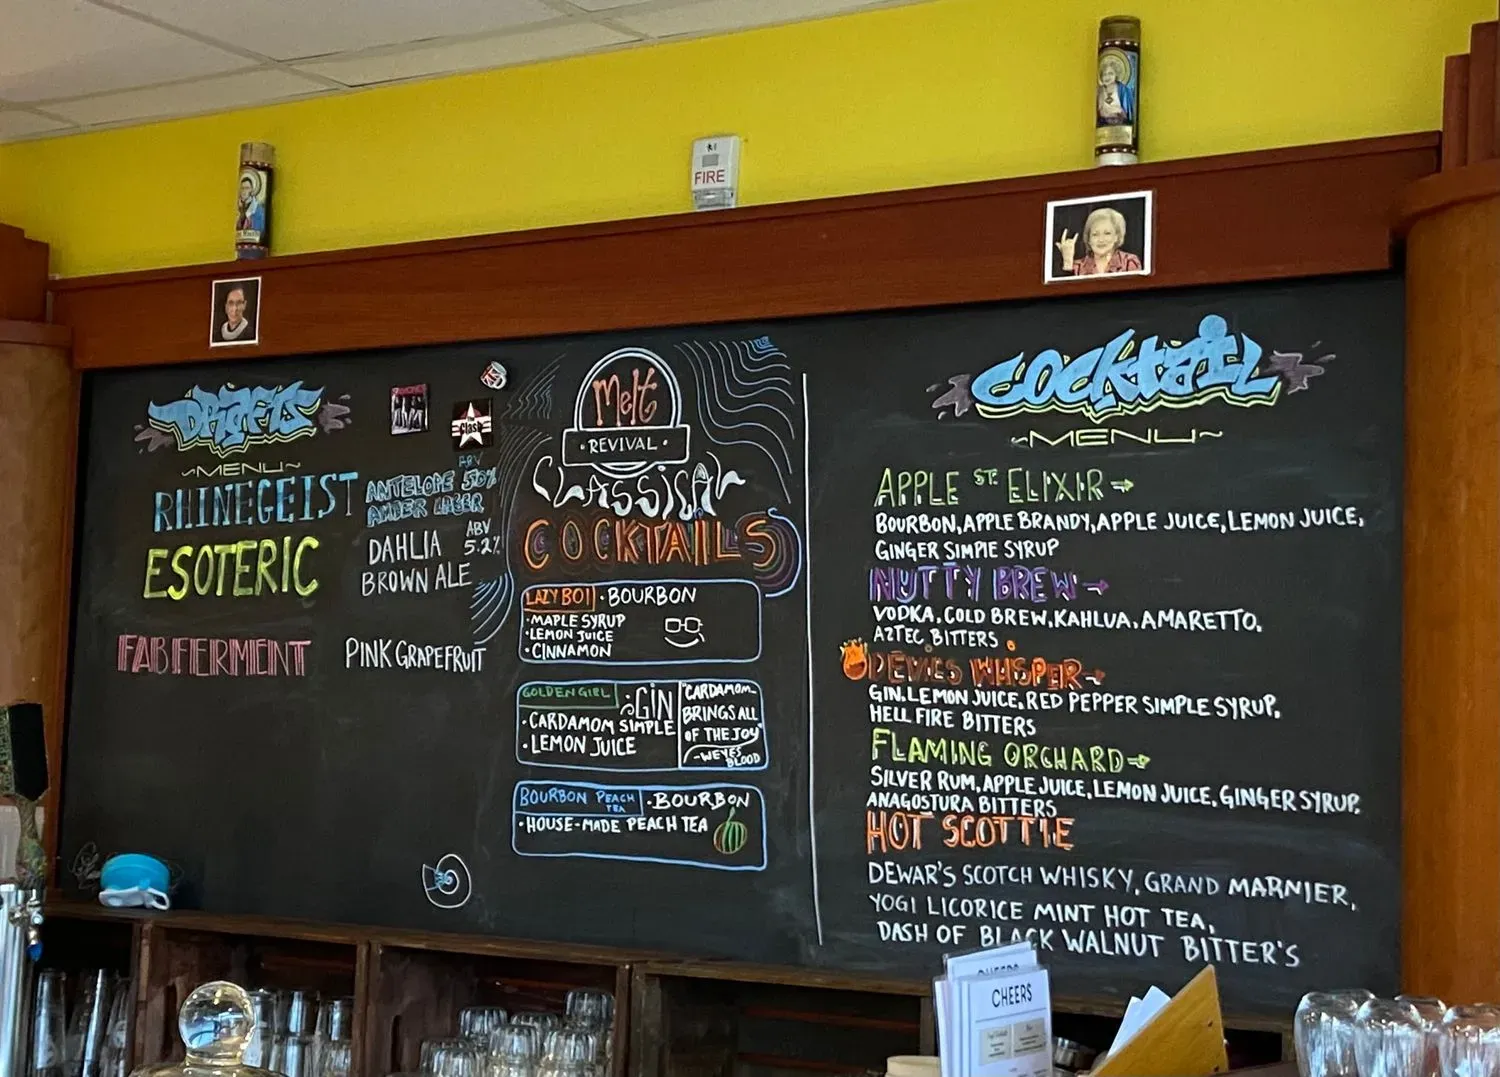 FIRE
DRAFTS
~MENU~
RHINEGEIST
ANTELOPE
AMBER LAGER
ABV
5.0%
ESOTERIC
DAHLIA
BROWN ALE
ABV
5.2%
FAB FERMENT
PINK GRAPEFRUIT
The
Clash
Melt
·REVIVAL·
CLASSICAL
COCKTAILS
LAZY BOI
·BOURBON
·MAPLE SYRUP
·LEMON JUICE
·CINNAMON
GOLDEN GIRL
·GIN
·CARDAMOM SIMPLE
·LEMON JUICE
"CARDAMOM-
BRINGS ALL
OF THE JOY"
-WEYES
BLOOD
BOURBON PEACH
TEA
·BOURBON
·HOUSE-MADE PEACH TEA
COCKTAIL
~MENU~
APPLE ST. ELIXIR→
BOURBON, APPLE BRANDY, APPLE JUICE, LEMON JUICE,
GINGER SIMPIE SYRUP
NUTTY BREW→
VODKA, COLD BREW, KAHLUA, AMARETTO,
AZTEC BITTERS
DEVILS WHISPER→
GIN, LEMON JUICE, RED PEPPER SIMPLE SYRUP,
HELL FIRE BITTERS
FLAMING ORCHARD→
SILVER RUM, APPLE JUICE, LEMON JUICE, GINGER SYRUP,
ANAGOSTURA BITTERS
HOT SCOTTIE
DEWAR'S SCOTCH WHISKY, GRAND MARNIER,
YOGI LICORICE MINT HOT TEA,
DASH OF BLACK WALNUT BITTER'S
CHEERS
CHEERS